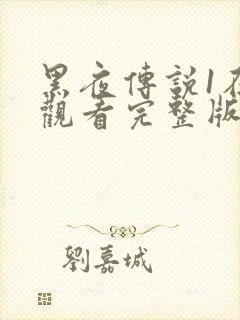 黑夜傳說1在
觀看完整版
劉嘉城